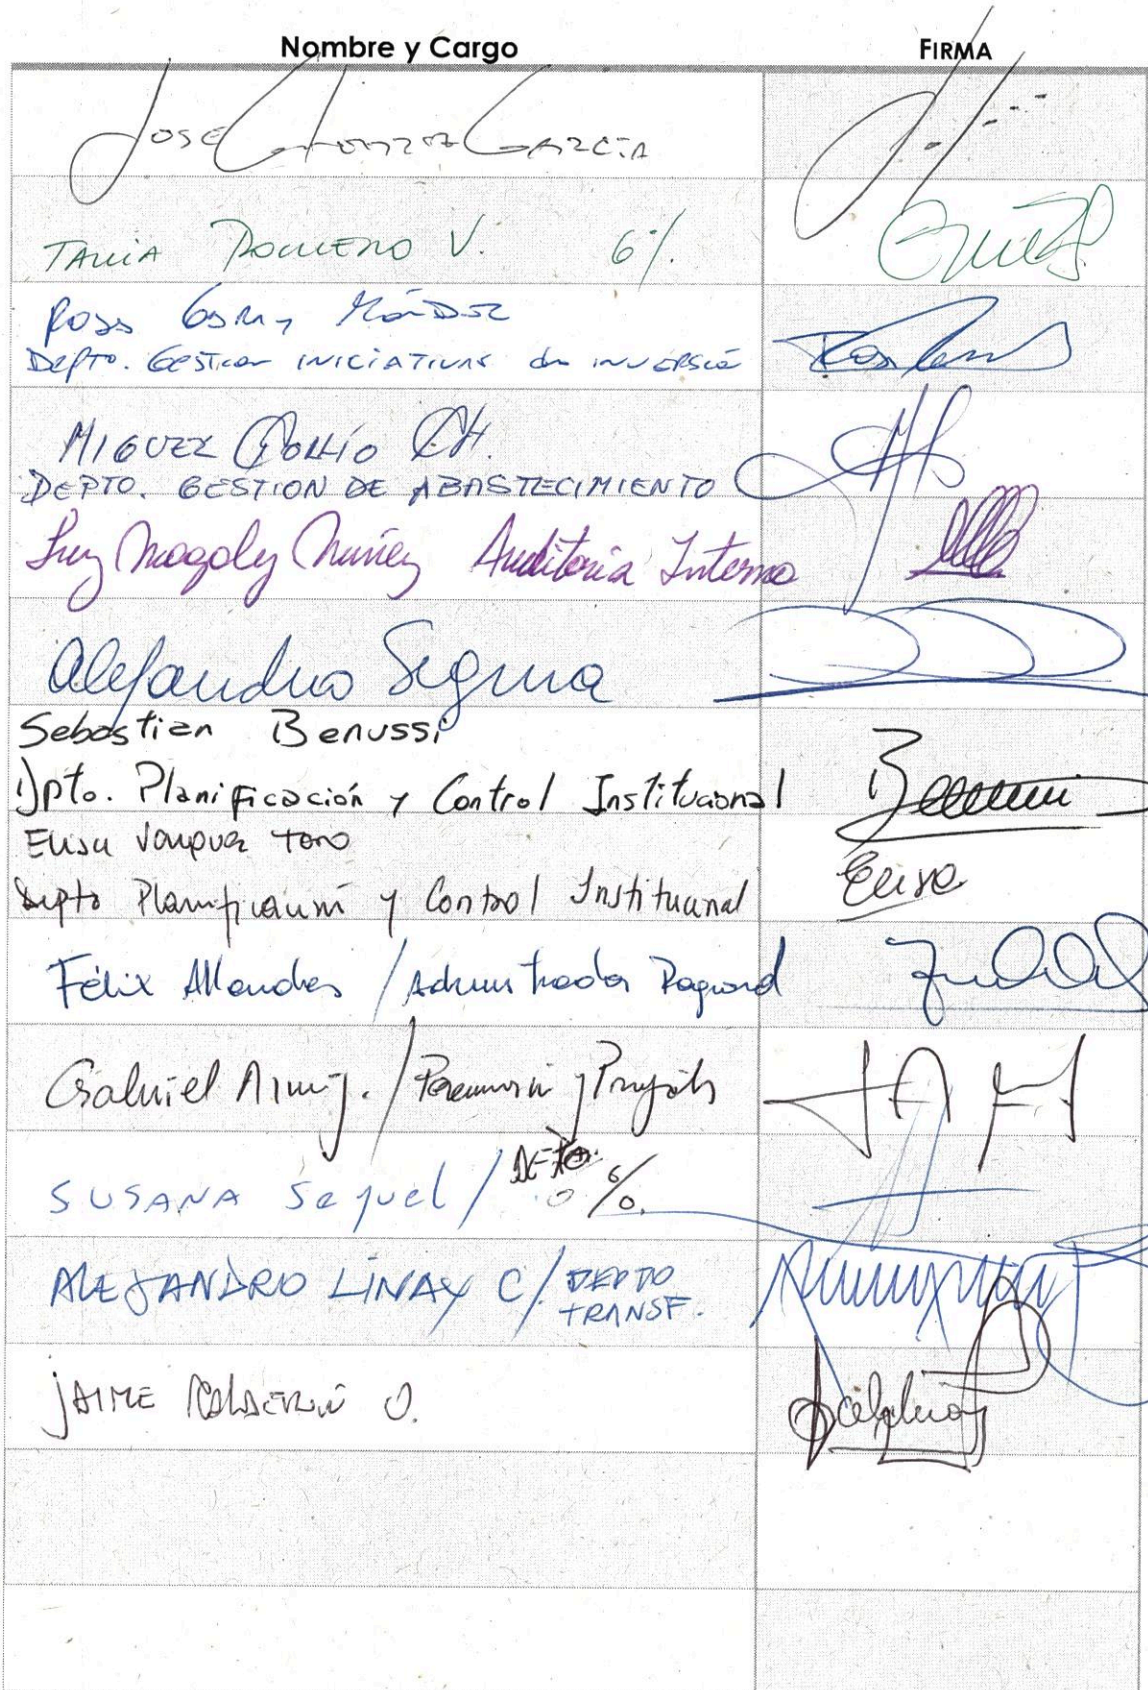 Nombre y Cargo FIRMA
JOSE GARCIA
TANIA ROMERO V. 6%.
DEPTO. GESTION INICIATIVAS de INVERSIÓ
MIGUEL CH.
DEPTO. GESTION DE ABASTECIMIENTO
Luz Magaly Nuñez Auditoria Interna
Alejandro Segura
Sebastian Benussi
Dpto. Planificación y Control Institucional
Elisa Vasquez Toro Elisa
Depto Planificación y Control Institucional
Félix Allendes / Administrador Regional
Gabriel /
SUSANA Sequel / DEPTO. 6%.
ALEJANDRO LINAY C / DEPTO
TRANSF.
JAIME CALDERÓN O.